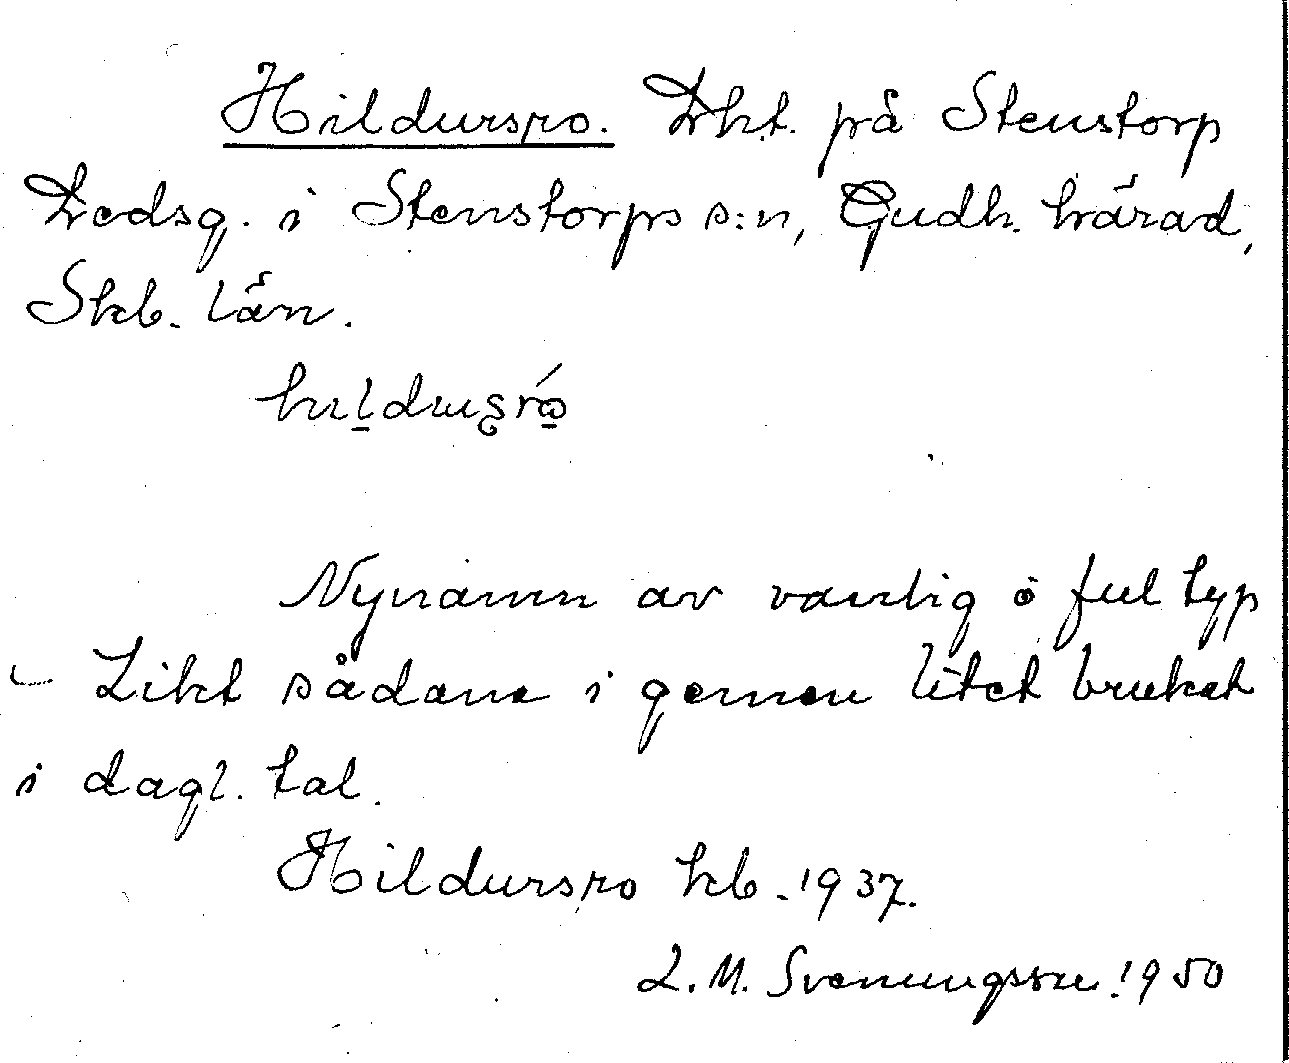 Hildursro. Lht. på Stenstorp
Ledsg. i Stenstorps s:n, Gudh. härad,
Skb. län.
Nynamn av vanlig o ful typ
- Likt sådana i gemen litet brukat
i dagl. tal.
Hildursro kb. 1937.
L. M. Svenungsson. 1950